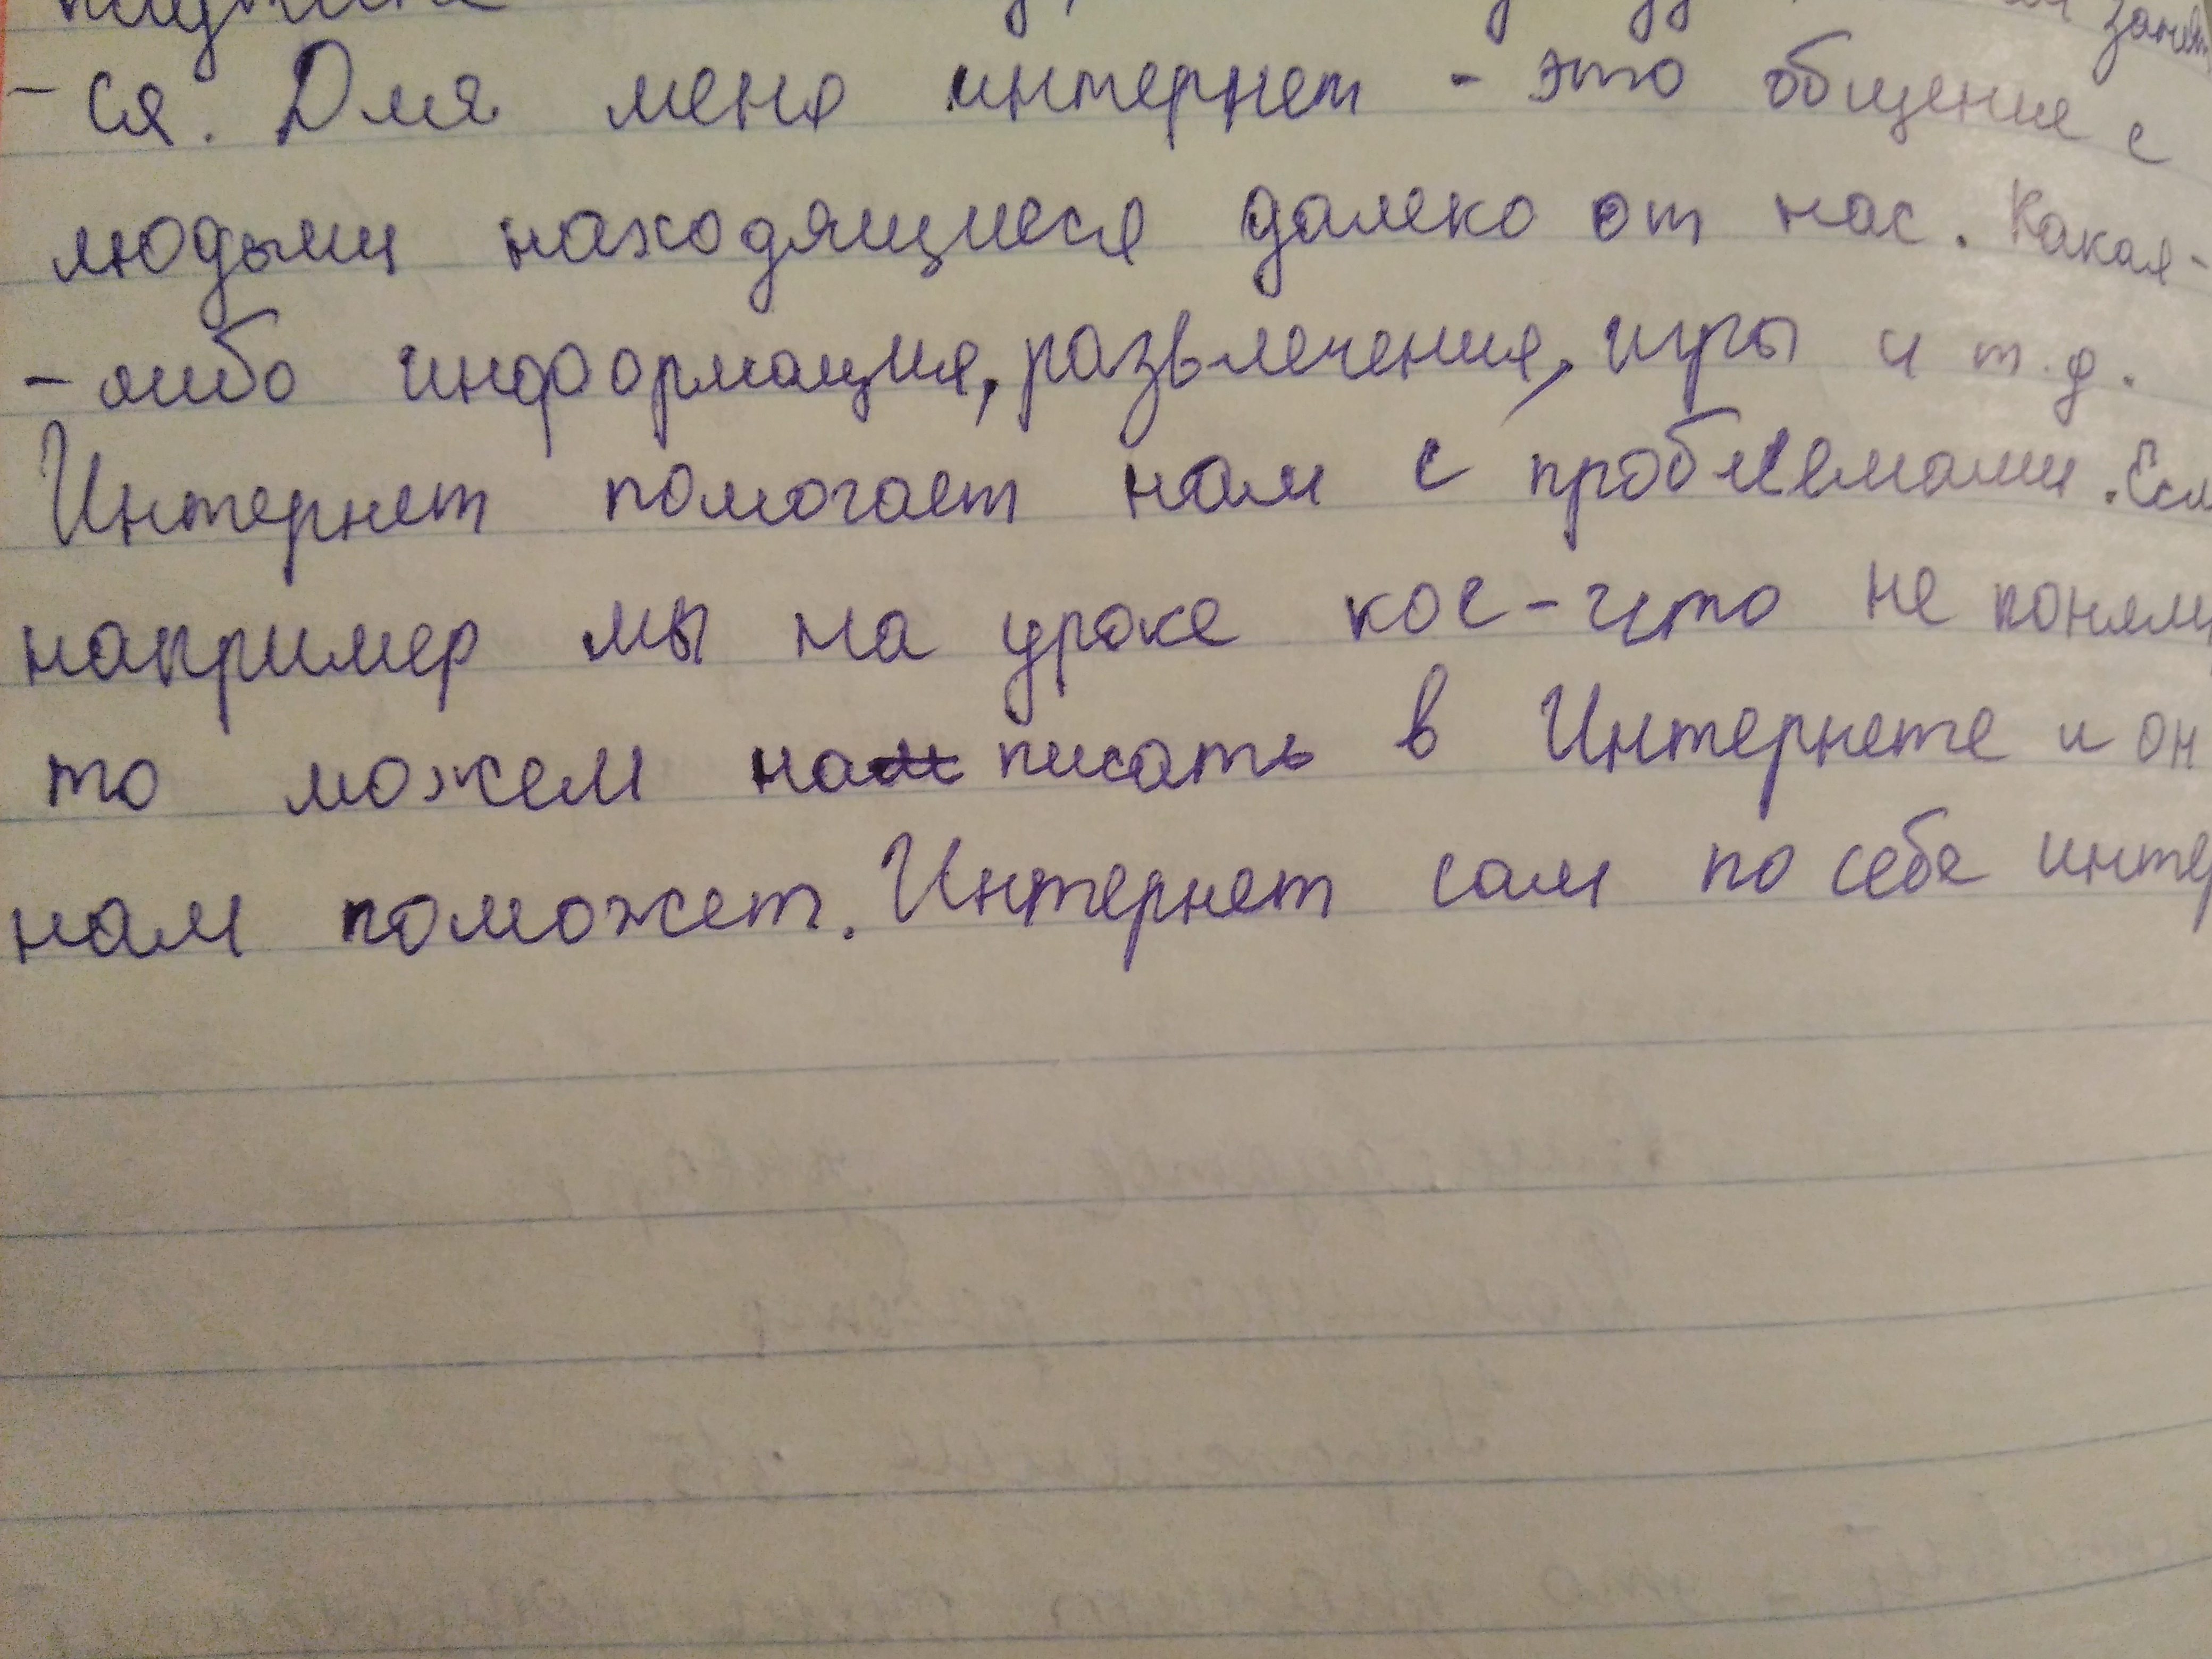 -ся. Для меня интернет - это общение с
людьми находящиеся далеко от нас. Какая-
-либо информация, развлечения, игры и т.д.
Интернет помогает нам с проблемами. Есл
например мы на уроке кое-что не поняли
то можем написать в Интернете и он
нам поможет. Интернет сам по себе интер